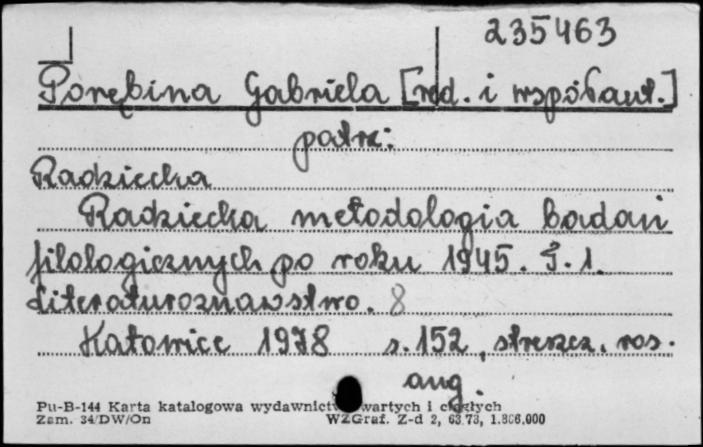 235463
Porębina Gabriela [red. i współaut.]
patrz:
Radziecka
Radziecka metodologia badań
filologicznych po roku 1945. T. 1.
Literaturoznawstwo. 8
Katowice 1978 s. 152, streszcz. ros.
ang.
Pu-B-144 Karta katalogowa wydawnictw zwartych i ciągłych
Zam. 34/DW/On WZGraf. Z-d 2, 63,73, 1.866.000